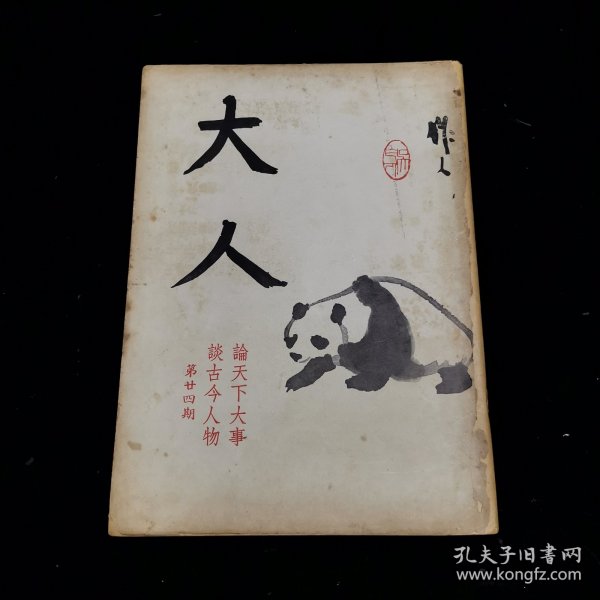 大人
作人
論天下大事
談古今人物
第廿四期
孔夫子旧書网
www.kongfz.com